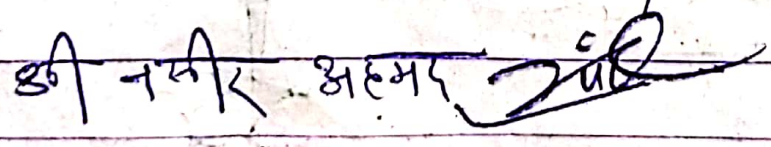 श्री नसीर अहमद